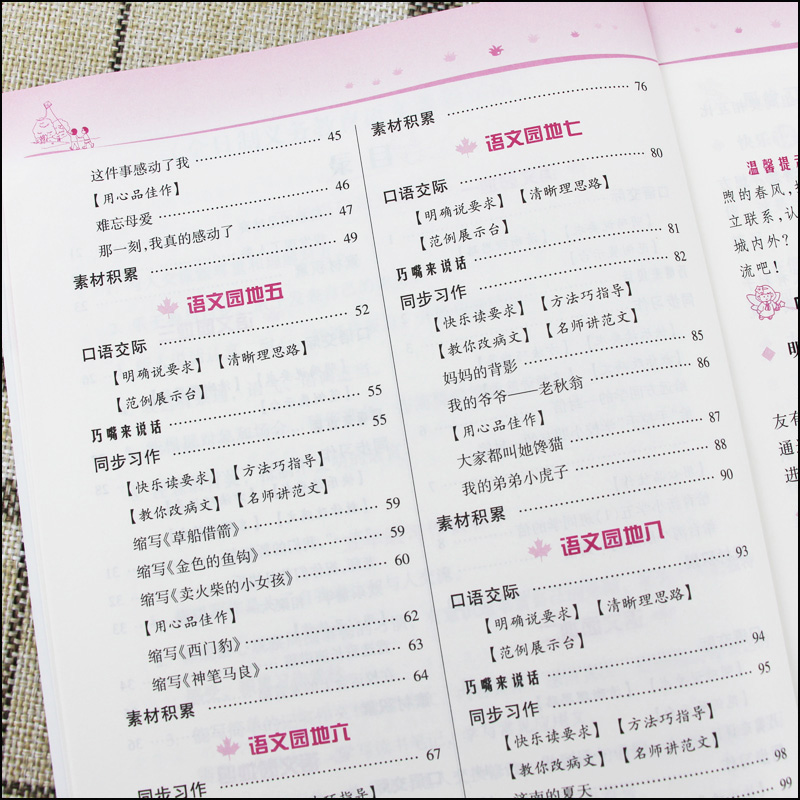 这件事感动了我 …… 45
【用心品佳作】
难忘母爱 …… 46
那一刻,我真的感动了 …… 47
素材积累 …… 49
语文园地五
口语交际 …… 52
【明确说要求】【清晰理思路】
【范例展示台】
巧嘴来说话 …… 55
同步习作 …… 55
【快乐读要求】【方法巧指导】
【教你改病文】【名师讲范文】
缩写《草船借箭》 …… 59
缩写《金色的鱼钩》 …… 59
缩写《卖火柴的小女孩》 …… 60
【用心品佳作】
缩写《西门豹》 …… 62
缩写《神笔马良》 …… 63
素材积累 …… 64
语文园地六
口语交际 …… 67
素材积累 …… 76
语文园地七
口语交际 …… 80
【明确说要求】【清晰理思路】
【范例展示台】
巧嘴来说话 …… 81
同步习作 …… 82
【快乐读要求】【方法巧指导】
【教你改病文】【名师讲范文】
妈妈的背影 …… 85
我的爷爷——老秋翁 …… 86
【用心品佳作】
大家都叫她馋猫 …… 87
我的弟弟小虎子 …… 88
素材积累 …… 90
语文园地八
口语交际 …… 93
【明确说要求】【清晰理思路】
【范例展示台】
巧嘴来说话 …… 94
同步习作 …… 95
【快乐读要求】【方法巧指导】
【教你改病文】【名师讲范文】
济南的夏天 …… 98
99
温馨提
煦的春风,
立联系,认
城内外?
流吧!
明
友有
通
进